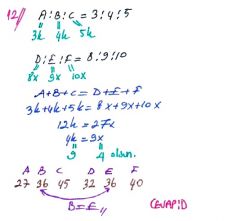 12// A:B:C = 3:4:5
3k 4k 5k
D:E:F = 8:9:10
8x 9x 10x
A+B+C = D+E+F
3k+4k+5k = 8x+9x+10x
12k = 27x
4k = 9x
9 4 olsun.
A B C D E F
27 36 45 32 36 40
B=E//
CEVAP:D